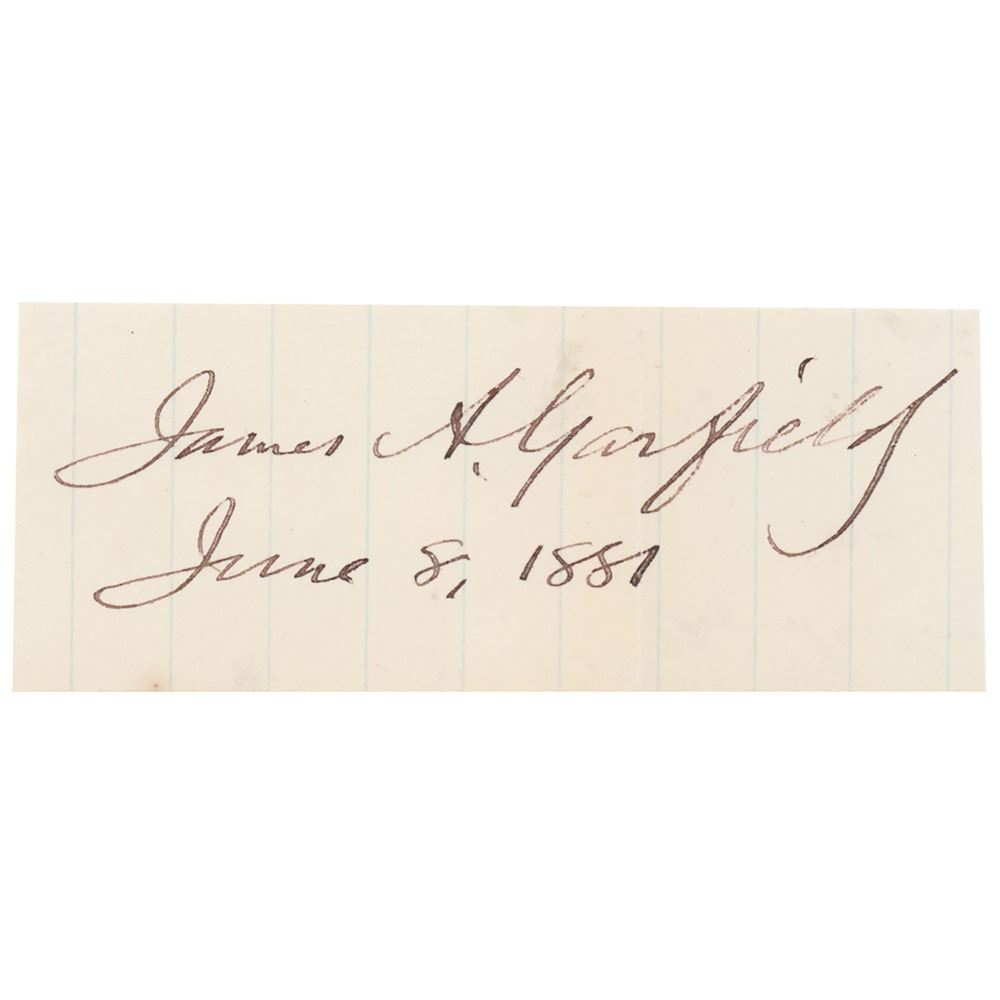 James A. Garfield
June 8, 1881